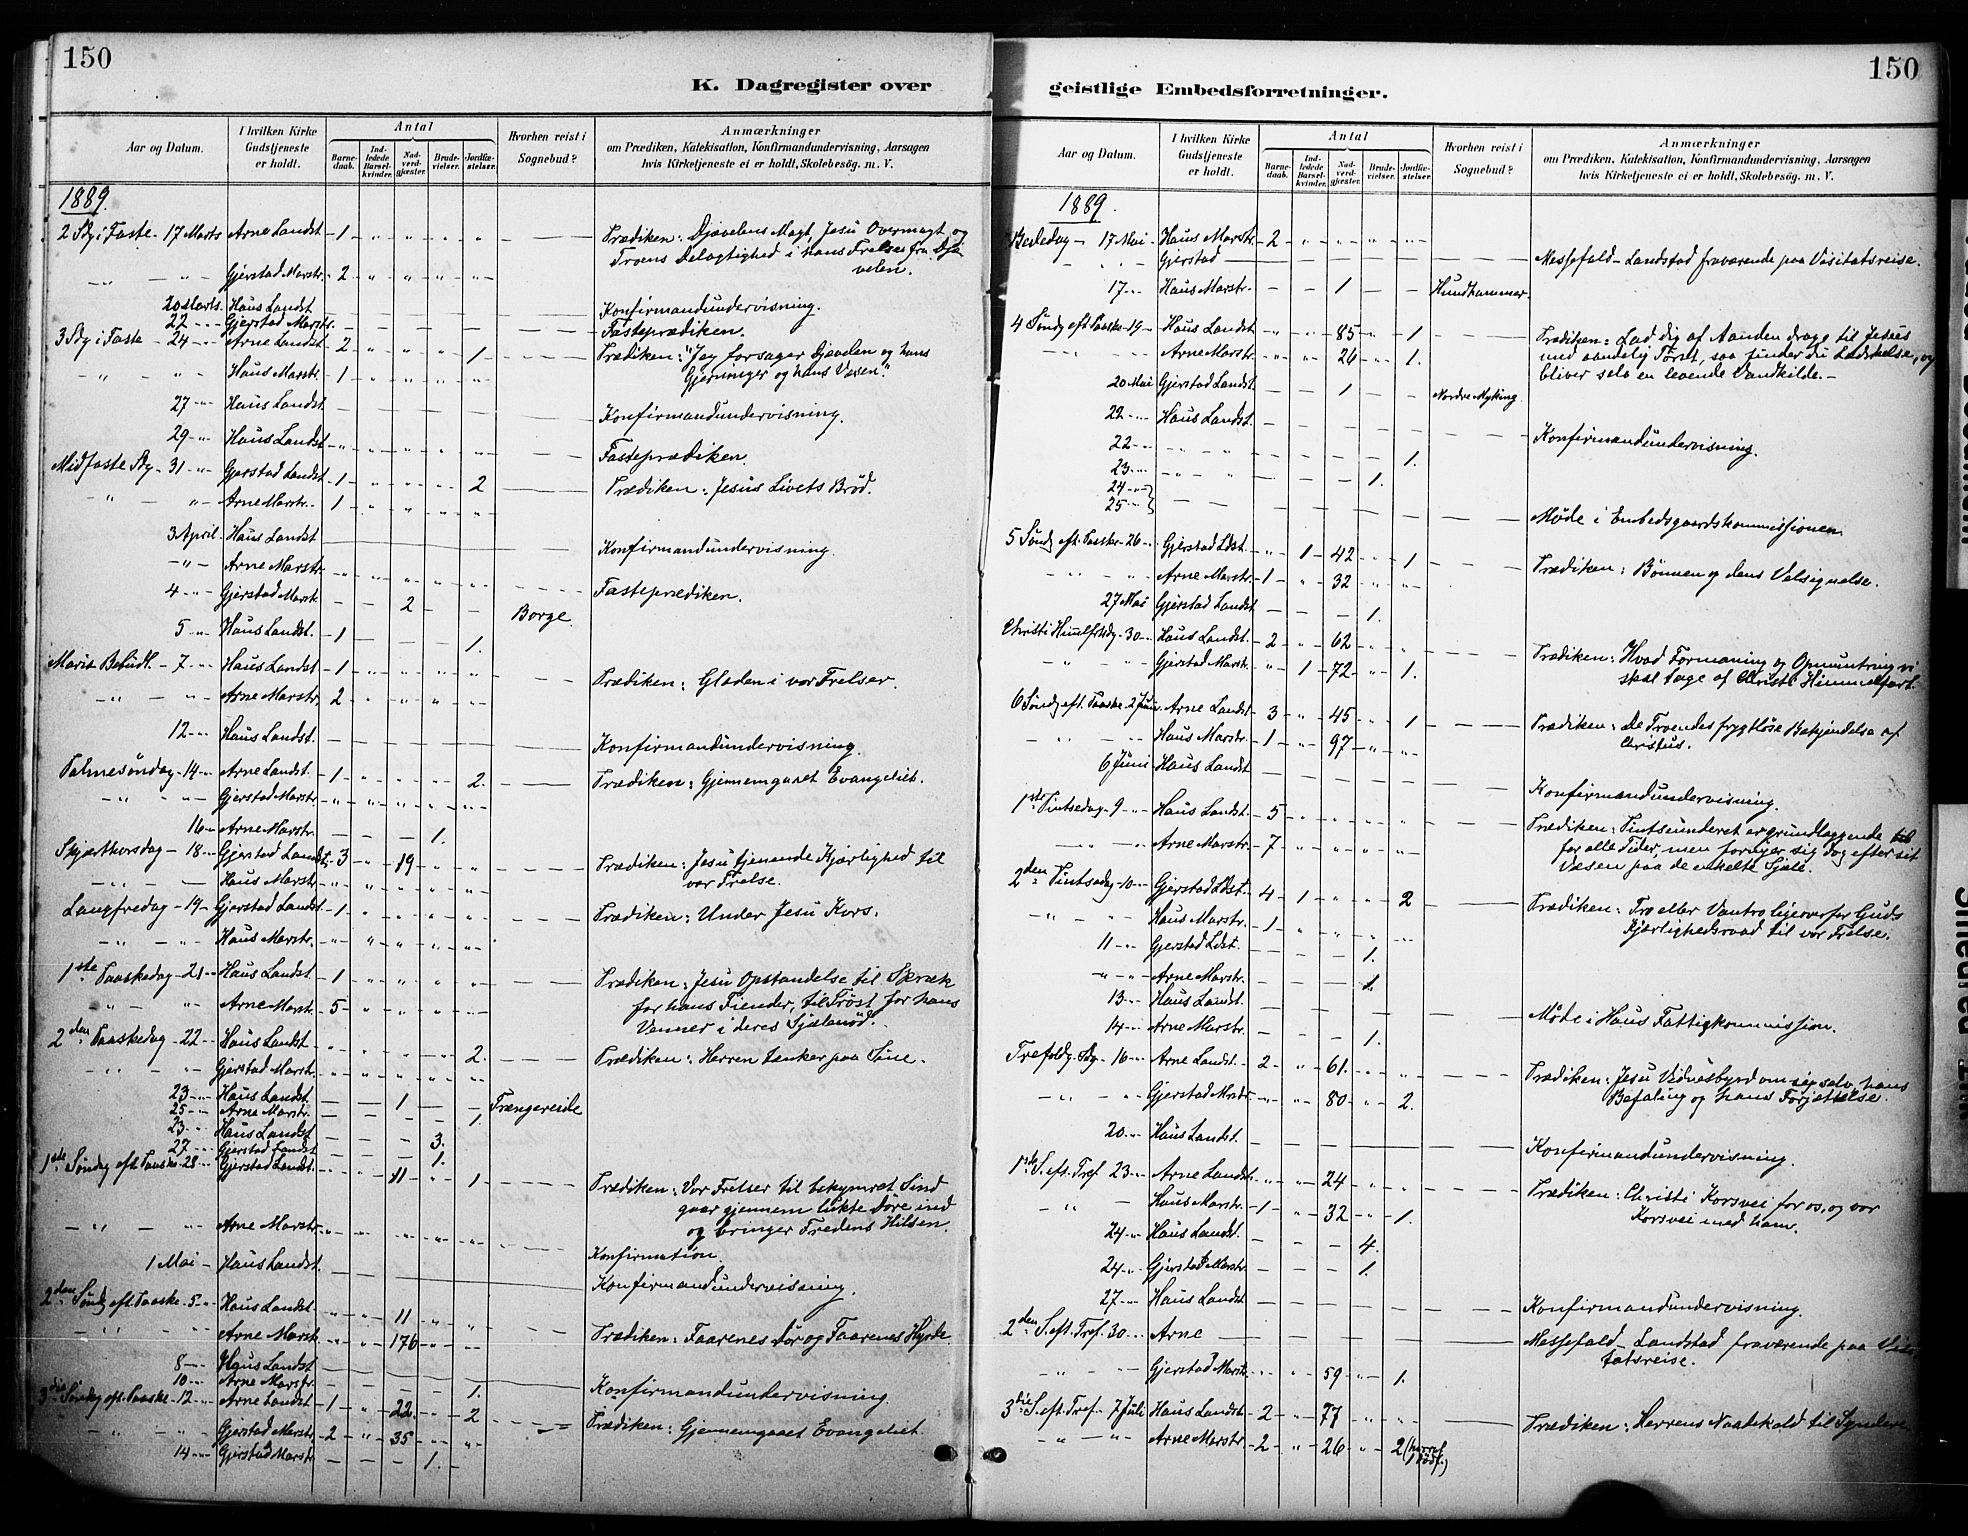 150
K. Dagregister over
Aar og Datum.
I hvilken Kirke Gudstjeneste er holdt.
Antal
Barnedaab.
Indledede Barselkvinder.
Nadverdgjæster.
Brudevielser.
Jordfæstelser.
Hvorhen reist i Sognebud?
Anmærkninger
om Prædiken, Katekisation, Konfirmandundervisning, Aarsagen
hvis Kirketjeneste ei er holdt, Skolebesøg. m. V.
1889.
2 Sdg i Faste - 17 Marts Arne Landst. 1 " " " " Prædiken: Djævelens Magt, Jesu Overmagt og
Troens Delagtighed i hans Frelse fra Djævelen.
" " Gjerstad Marstr. 2 " " " "
20 Marts. Haus Landst Konfirmandundervisning.
22 " Gjerstad Marstr. Fasteprædiken.
3 Sdg i Faste - 24 " Arne Landst. 2 " " " 1. Prædiken: "Jeg forsager Djævelen og hans
Gjerninger og hans Væsen".
" " Haus Marstr. 1 " " " "
27 " Haus Landst. Konfirmandundervisning.
29 " Haus Landst. Fasteprædiken.
Midfaste Sdg - 31 " Gjerstad Landst. 1 " " " 2 Prædiken: Jesus Livets Brød.
" " Arne Marstr. 1 " " " "
3 April Haus Landst Konfirmandundervisning.
" " Arne Marstr. Fasteprædiken.
4 " Gjerstad Marst. 2 Borge.
5 " Haus Landst. 1 1.
Mariæ Bebudl. - 7 " Haus Landst. 1 " " " " Prædiken: Glæden i vor Frelser.
" " Arne Marstr. 2 " " " "
12 " Haus Landst. Konfirmandundervisning.
Palmesøndag - 14 " Arne Landst. 1 " " " 2. Prædiken: Gjennemgaaet Evangeliet.
" " Gjerstad Marstr. " " " " "
16 " Arne Marstr. 1.
Skjærthorsdag - 18 " Gjerstad Landst. 3 " 19 " " Prædiken: Jesu tjenende Kjærlighed til
vor Frelse.
" " Haus Marstr. " " " " "
Langfredag - 19 - Gjerstad Landst. 1 " " " " Prædiken: Under Jesu Kors.
" " Haus Marstr. " " " " "
1ste Paaskedag - 21 " Haus Landst. 1 " " " " Prædiken: Jesu Opstandelse til Skræk
for hans Fiender, til Trøst for hans
Venner i deres Sjælenød.
" " Arne Marst. 5 " " " "
2den Paaskedag - 22 " Haus Landst " " " " 2. Prædiken: Herren tænker paa Sine.
" " Gjerstad Marstr. " " " " "
23 " Haus Landst. 1 Trængereide
25 " Arne Marstr. 1.
23 " Haus Landst 3.
27 " Gjerstad Landst 1.
1ste Søndag eft. Paaske 28 " Gjerstad Landst. " " 11 " 1. Prædiken: Vor Frelser til bekymret Sind
gaar gjennem lukte Døre ind
og bringer Fredens Hilsen.
" " Arne Marstr. " " " " " Konfirmation.
1 Mai - Haus Landst. Konfirmandundervisning.
2den Sønd. eft. Paaske - 5 " Haus Landst. " " 11 " "
" " Arne Marst. " " 176 " " Prædiken: Faarenes Dør og Faarenes Hyrde
8 " Haus Landst.
10 " Arne Marstr. 1. Konfirmandundervisning.
3die Søndag eft. Paaske - 12 " Arne Landst. 1 " 22 " 2 Prædiken: Gjennemgaaet Evangeliet.
" " Gjerstad Marstr. 2 " 35 " "
14 " Gjerstad Marstr. 1.
150
geistlige Embedsforretninger.
Aar og Datum.
I hvilken Kirke Gudstjeneste er holdt.
Antal
Barnedaab.
Indledede Barselkvinder.
Nadverdgjæster.
Brudevielser.
Jordfæstelser.
Hvorhen reist i Sognebud?
Anmærkninger
om Prædiken, Katekisation, Konfirmandundervisning, Aarsagen
hvis Kirketjeneste ei er holdt, Skolebesøg. m. V.
1889.
Bededag - 17 Mai Haus Marstr. 2 " " " "
" " Gjerstad Messefald - Landstad fraværende paa Visitatsreise.
17 " Haus Marstr. 1 Hundhammer.
4 Sønd. eft. Paaske - 19 " Haus Landst. " " 85 " 1 Prædiken: Lad dig af Aanden drage til Jesus
med aandelig Tørst, saa finder du Lædskelse, og
bliver selv en levende Vandkilde. -
" " Arne Marstr. " " 26 " 1.
20 Mai Gjerstad Landst. 1 Nordre Myking.
22 " Haus Landst. Konfirmandundervisning.
22 " " " 1.
23 " " " 1.
24 "
25 " Møde i Embedsgaardskommissionen.
5 Sønd. eft. Paaske - 26 " Gjerstad Ldst. " 1 42 " 1 Prædiken: Bønnen og dens Velsignelse.
" " Arne Marstr. 1 " 32 " "
27 Mai Gjerstad Landst 1.
Christi Himlfrtsdg - 30 " Haus Landst. 2 " 62 " " Prædiken: Hvad Formaning og Opmuntring vi
skal tage af Christi Himmelfart.
" " Gjerstad Marstr. " 1 72 " 1.
6 Sønd. eft. Paaske. 2 Juni Arne Landst. 3 " 45 " 1 Prædiken: De Troendes frygtløse Bekjendelse af
Christus.
" " Haus Marstr. 1 " 97 " "
6 Juni Haus Landst Konfirmandundervisning.
1ste Pintsedag - 9 " Haus Landst. 5 " " " " Prædiken: Pintseunderet er grundlæggende
for alle Tider, men fornyer sig dog efter sit
Væsen paa de enkelte Sjæle.
" " Arne Marstr. 7 " " " "
2den Pintsedg - 10 " Gjerstad Ldst. 4 1 " " 2 Prædiken: Tro eller Vantro ligeoverfor Guds
Kjærlighedsraad til vor Frelse.
" " Haus Marstr. 1 " " " "
11 " Gjerstad Ldst. 1.
" " Arne Marstr. 1.
13 " Haus Landst. Møde i Haus Fattigkommission.
14 " Arne Marstr. 1.
Trefoldg. Sdg - 16 " Arne Landst. 2 " 61. " " Prædiken: Jesu Vidnesbyrd om sig selv, hans
Befaling og hans Forjættelse.
" " Gjerstad Mrstr. " " 80 " 2.
20 " Haus Landst. Konfirmandundervisning.
1ste S. eft. Tref. 23 " Arne Landst. " " 24 " " Prædiken: Christi Korsvei for os, og vor
Korsvei med ham.
" - Haus Marstr. 1 " 32 " 1.
24 " Haus Landst. 4.
24 " Gjerstad Marstr. 1.
27 " Haus Landst. Konfirmandundervisning.
2den S. eft. Tref. 30 " Arne Messefald - Landstad fraværende paa Visitatsreise.
" " Gjerstad Marstr. " " 59 " 1.
3die S. eft. Tref. 7 Juli Haus Landst. 2 " 77 " " Prædiken: Herrens Naadekald til Syndere
" " Arne Marstr. 2 " 26 " 2 (hvoraf 1 dødf.)